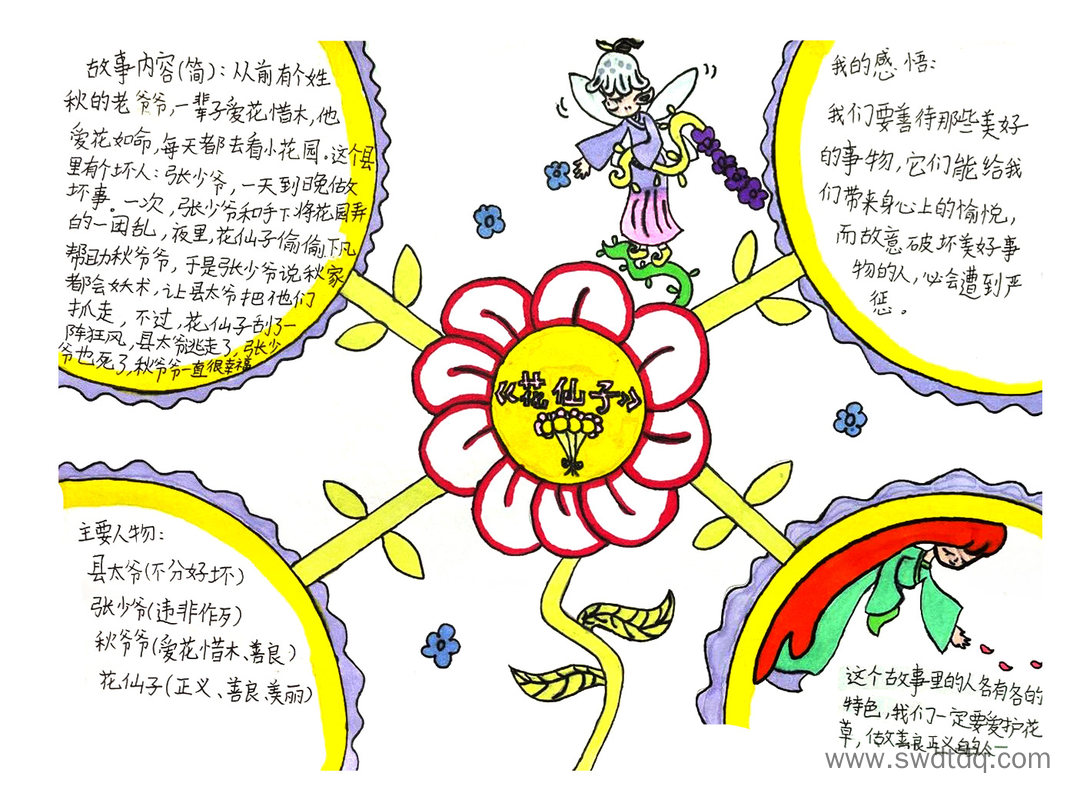 故事内容(简)：从前有个姓
秋的老爷爷，一辈子爱花惜木，他
爱花如命，每天都去看小花园。这个县
里有个坏人：张少爷，一天到晚做
坏事。一次，张少爷和手下将花园弄
的一团乱，夜里，花仙子偷偷下凡
帮助秋爷爷，于是张少爷说秋家
都会妖术，让县太爷把他们
抓走，不过，花仙子刮了一
阵狂风，县太爷逃走了，张少
爷也死了，秋爷爷一直很幸福
我的感悟：
我们要善待那些美好
的事物，它们能给我
们带来身心上的愉悦，
而故意破坏美好事
物的人，必会遭到严
惩。
《花仙子》
主要人物：
县太爷(不分好坏)
张少爷(违非作歹)
秋爷爷(爱花惜木、善良)
花仙子(正义、善良、美丽)
这个故事里的人各有各的
特色，我们一定要爱护花
草，做善良正义的人
www.swdtdq.com